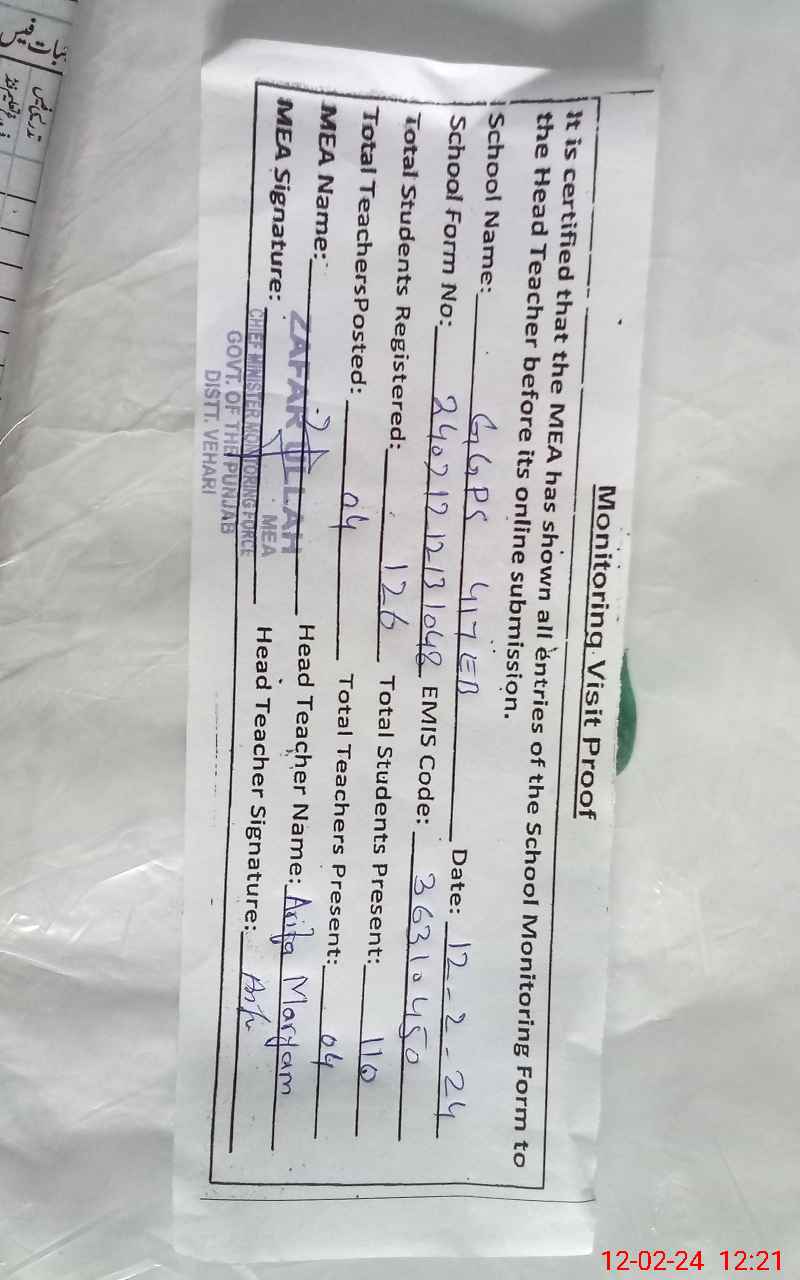 Monitoring Visit Proof
It is certified that the MEA has shown all entries of the School Monitoring Form to
the Head Teacher before its online submission.
School Name: GGPS 417 EB Date: 12-2-24
School Form No: 24021212131048 EMIS Code: 36310450
Total Students Registered: 126 Total Students Present: 110
Total TeachersPosted: 04 Total Teachers Present: 04
MEA Name: ZAFAR ULLAH Head Teacher Name: Arifa Maryam
MEA
MEA Signature: Head Teacher Signature:
CHIEF MINISTER MONITORING FORCE
GOVT. OF THE PUNJAB
DISTT. VEHARI
12-02-24 12:21